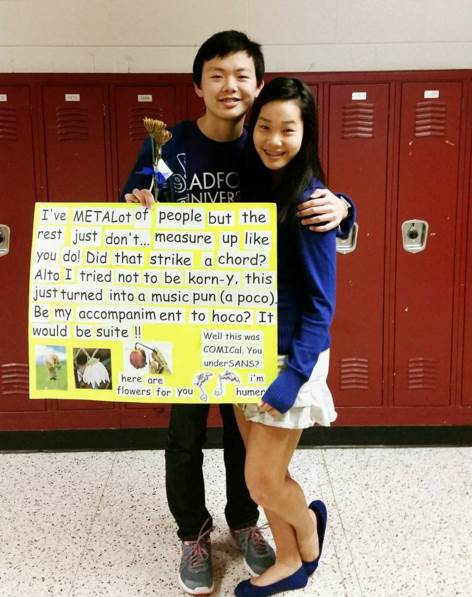 ADFO
NIVERS
I've METALot of people but the
rest just don't... measure up like
you do! Did that strike a chord?
Alto I tried not to be korn-y, this
just turned into a music pun (a poco).
Be my accompanim ent to hoco? It
would be suite !!
Well this was
COMICal. You
underSANS?
here are
flowers for you
i'm
humer